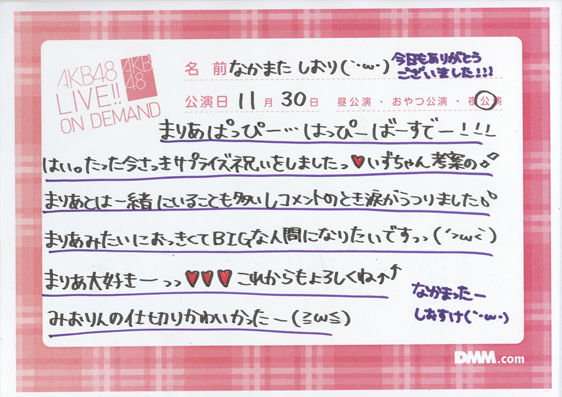 AKB48
LIVE!!
ON DEMAND
AKB
48
名 前 なかまた しおり(`･ω･)
今日もありがとう
ございました!!!
公演日 11 月 30 日 昼公演・おやつ公演・夜公演
まりあぱっぴー…はっぴーばーすでー!!!
はい。たった今さっきサプライズ祝いをしましたっ♥いずちゃん考案の
まりあとは一緒にいることも多いしコメントのとき涙がうつりました
まりあみたいにおっきくてBIGな人間になりたいですっっ(´>ω<`)
まりあ大好きーっっ♥♥♥これからもよろしくね↑↑
みおりんの仕切りかわいかったー(≧ω≦)
なかまったー
しおすけ(`･ω･)
DMM.com